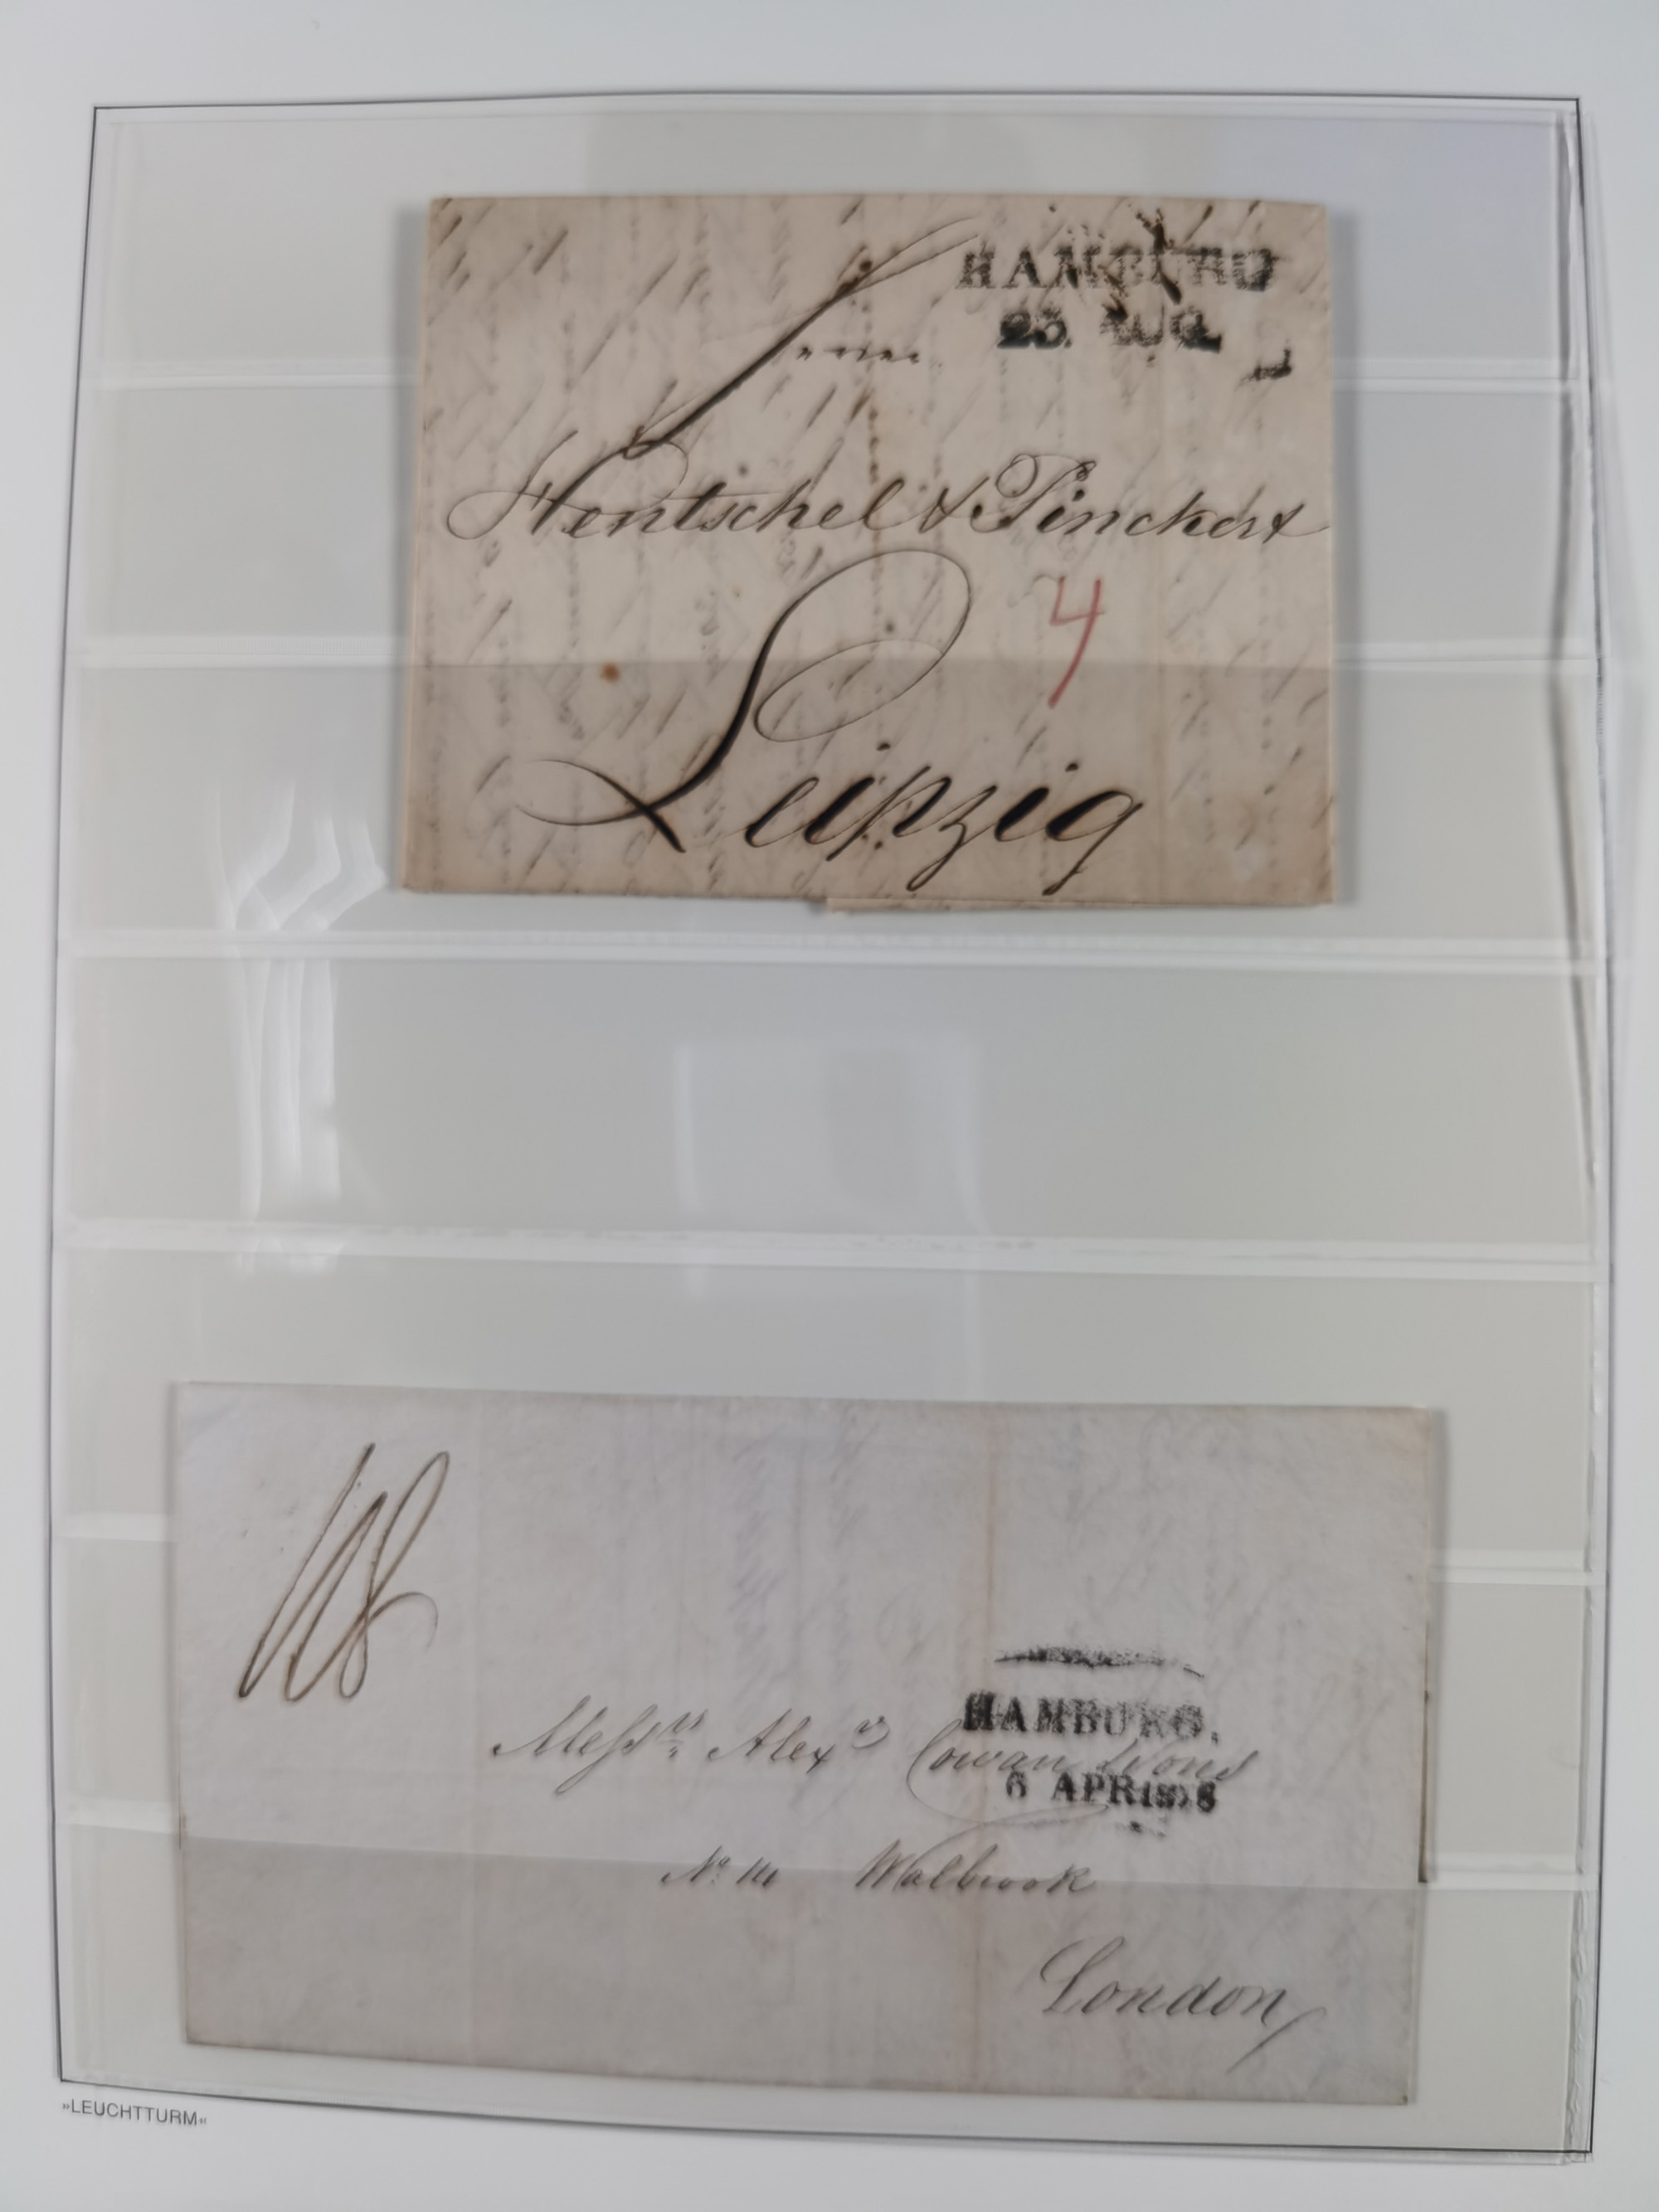 HAMBURG
23. AUG.
Hentschel & Pinckert
4
Leipzig
HAMBURG.
Messrs Alexr Cowan & Sons
6 APR
No Walbrook
London
»LEUCHTTURM«